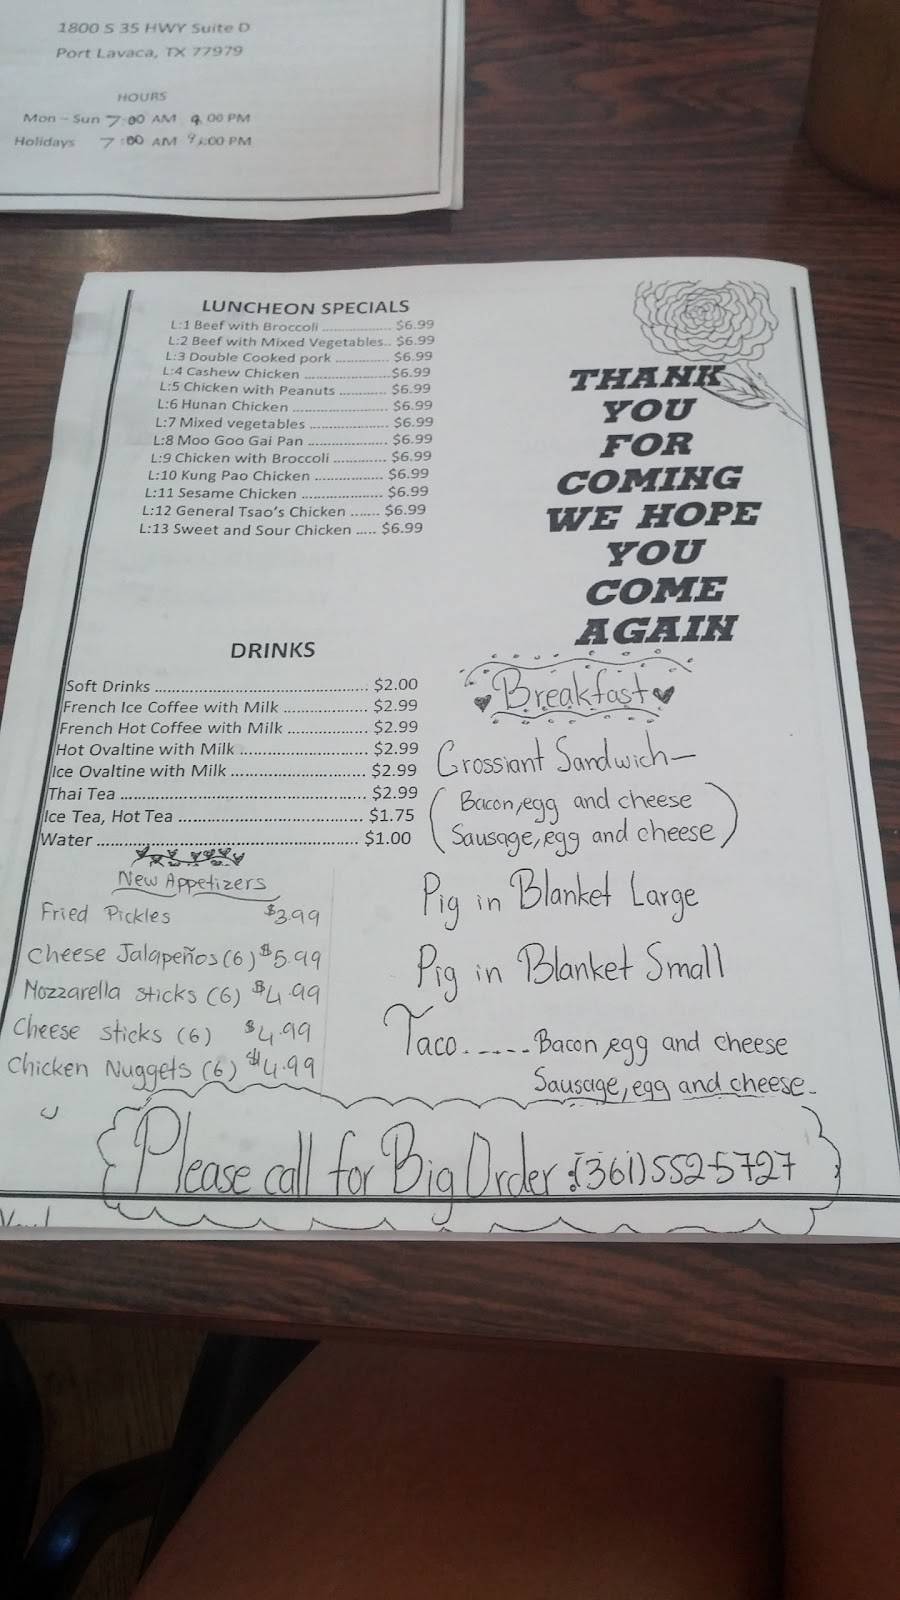 1800 S 35 HWY Suite D
Port Lavaca, TX 77979
HOURS
Mon – Sun 7:00 AM 9:00 PM
Holidays 7:00 AM 9:00 PM
LUNCHEON SPECIALS
L:1 Beef with Broccoli ................. $6.99
L:2 Beef with Mixed Vegetables.. $6.99
L:3 Double Cooked pork ............. $6.99
L:4 Cashew Chicken .....................$6.99
L:5 Chicken with Peanuts ........... $6.99
L:6 Hunan Chicken ...................... $6.99
L:7 Mixed vegetables .................. $6.99
L:8 Moo Goo Gai Pan .................. $6.99
L:9 Chicken with Broccoli ............ $6.99
L:10 Kung Pao Chicken ............... $6.99
L:11 Sesame Chicken ................... $6.99
L:12 General Tsao's Chicken ...... $6.99
L:13 Sweet and Sour Chicken ..... $6.99
THANK
YOU
FOR
COMING
WE HOPE
YOU
COME
AGAIN
DRINKS
Soft Drinks ............................................. $2.00
French Ice Coffee with Milk .................. $2.99
French Hot Coffee with Milk ................. $2.99
Hot Ovaltine with Milk ........................... $2.99
Ice Ovaltine with Milk ............................ $2.99
Thai Tea .................................................... $2.99
Ice Tea, Hot Tea ....................................... $1.75
Water ........................................................ $1.00
New Appetizers
Fried Pickles $3.99
Cheese Jalapeños (6) $5.99
Mozzarella sticks (6) $4.99
Cheese sticks (6) $4.99
Chicken Nuggets (6) $4.99
Breakfast
Crossiant Sandwich—
(Bacon, egg and cheese
Sausage, egg and cheese)
Pig in Blanket Large
Pig in Blanket Small
Taco...... Bacon, egg and cheese
Sausage, egg and cheese.
Please call for Big Order: (361) 552-5727